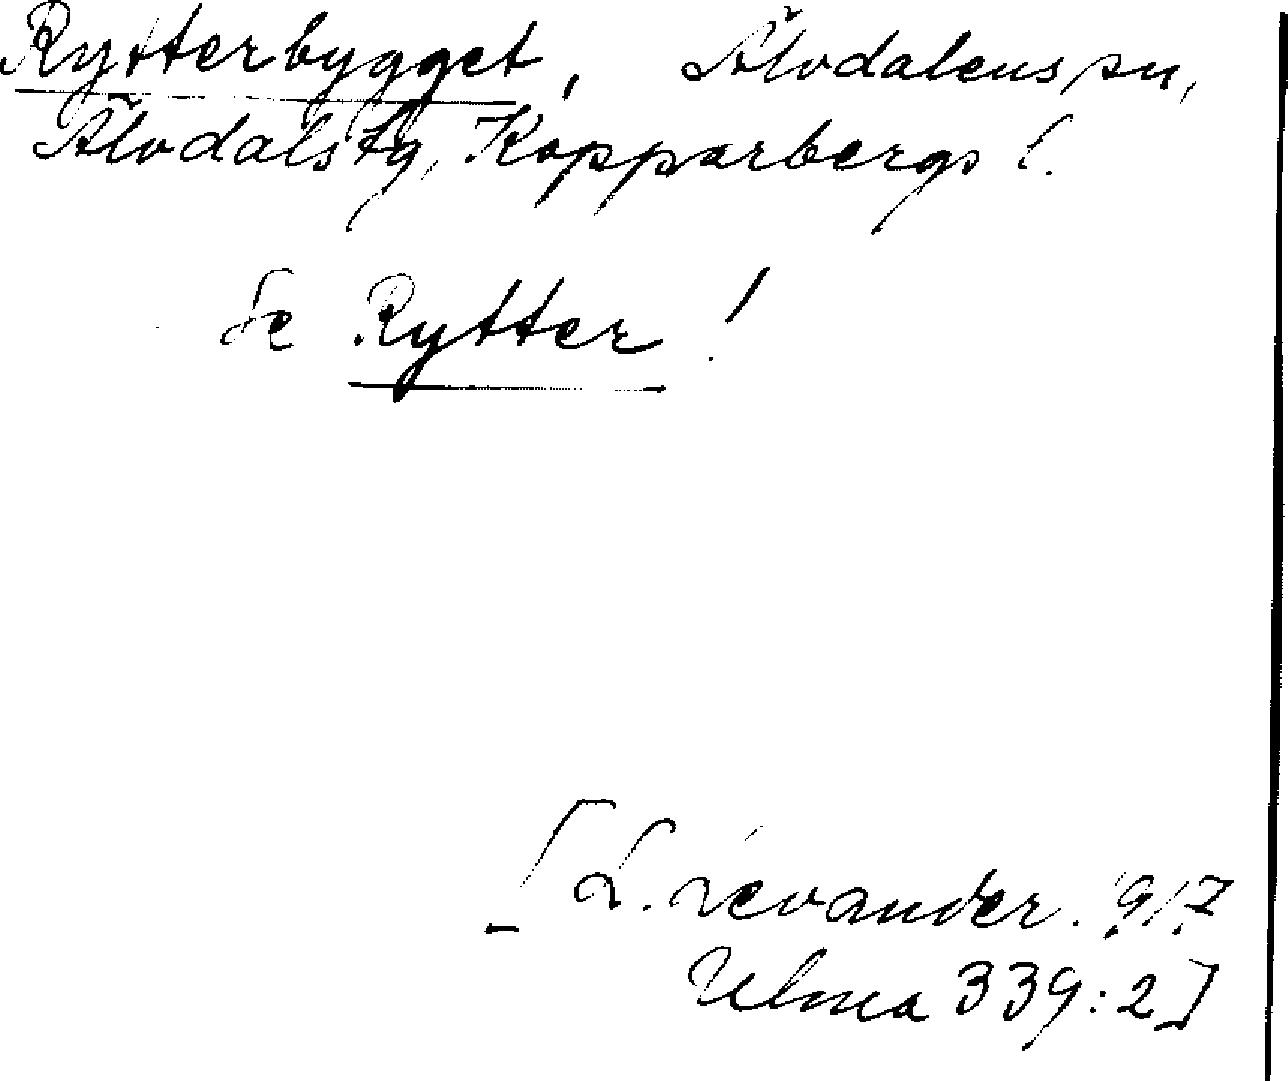 Rytterbygget, Älvdalens sn,
Älvdals tg, Kopparbergs l.
Se Rytter!
[L. Levander. 1917
Ulma 339:2]